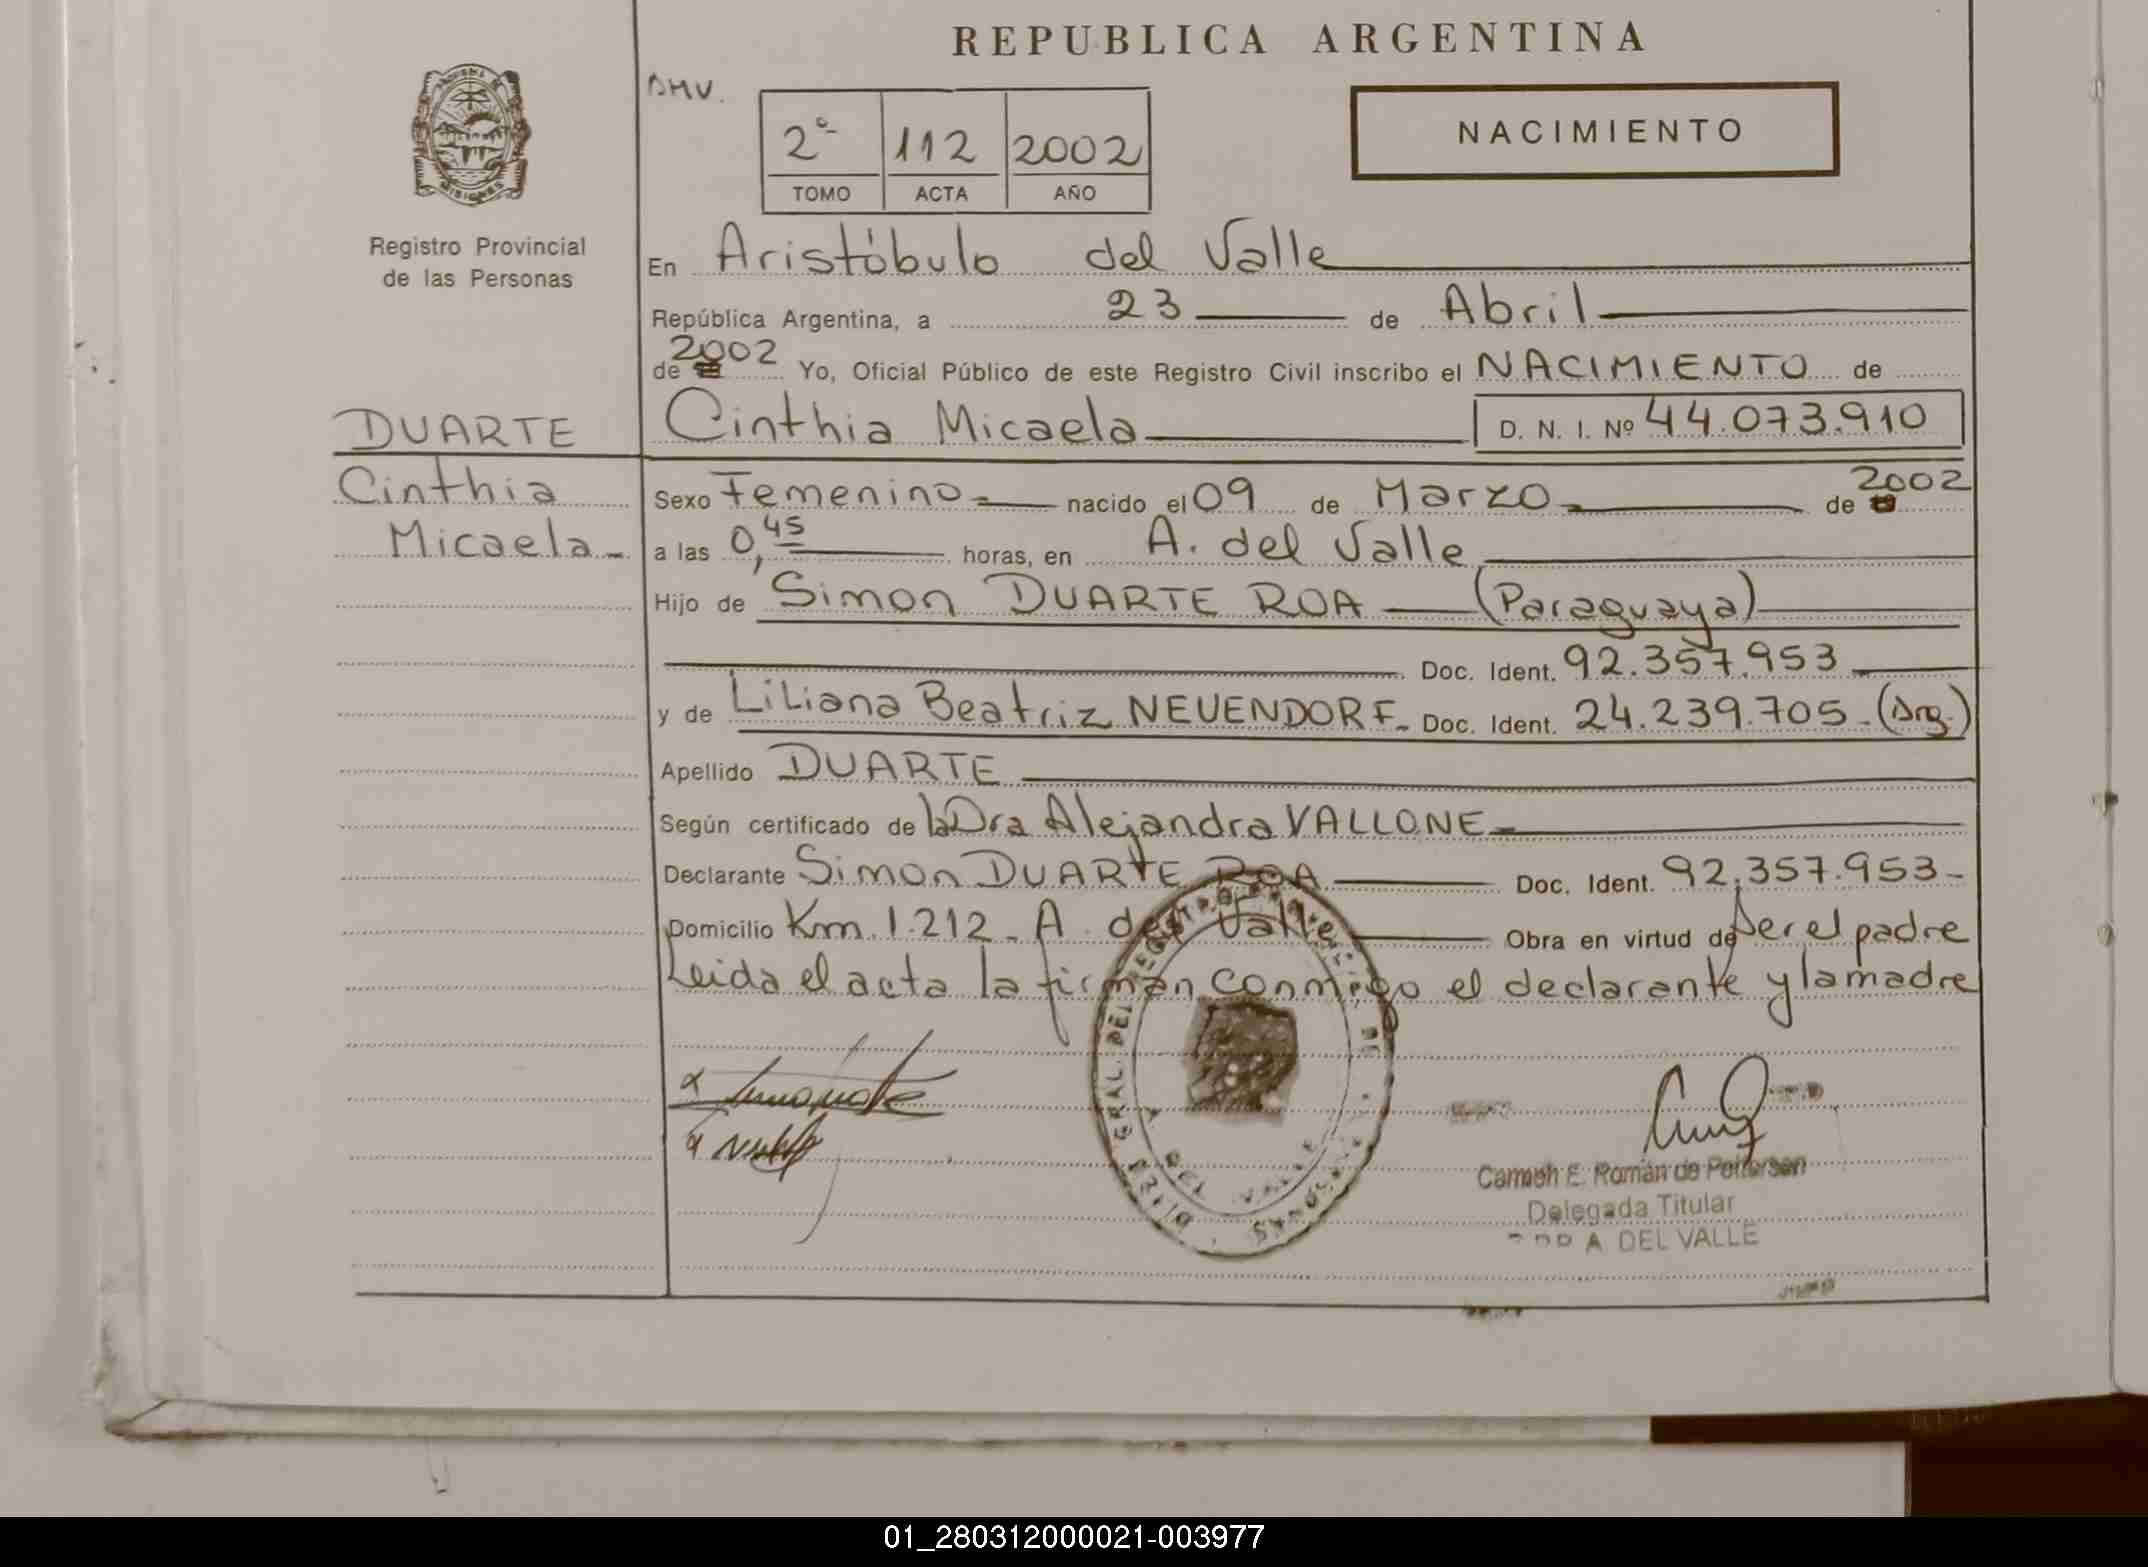 REPUBLICA ARGENTINA
DHV.
2º 112 2002
TOMO ACTA AÑO
NACIMIENTO
MISIONES
Registro Provincial
de las Personas
En Aristóbulo del Valle
República Argentina, a 23 de Abril
de 2002 Yo, Oficial Público de este Registro Civil inscribo el NACIMIENTO de
DUARTE
Cinthia
Micaela
Cinthia Micaela D. N. I. Nº 44.073.910
Sexo Femenino nacido el 09 de Marzo de 2002
a las 0,45 horas, en A. del Valle
Hijo de Simon DUARTE ROA (Paraguaya)
Doc. Ident. 92.357.953
y de Liliana Beatriz NEUENDORF Doc. Ident. 24.239.705 (Arg.)
Apellido DUARTE
Según certificado de la Dra Alejandra VALLONE
Declarante Simon DUARTE ROA Doc. Ident. 92.357.953
Domicilio Km. 1.212 - A. del Valle Obra en virtud de ser el padre
Leida el acta la firman conmigo el declarante y la madre
Carmen E. Román de
Delegada Titular
A DEL VALLE
01_280312000021-003977